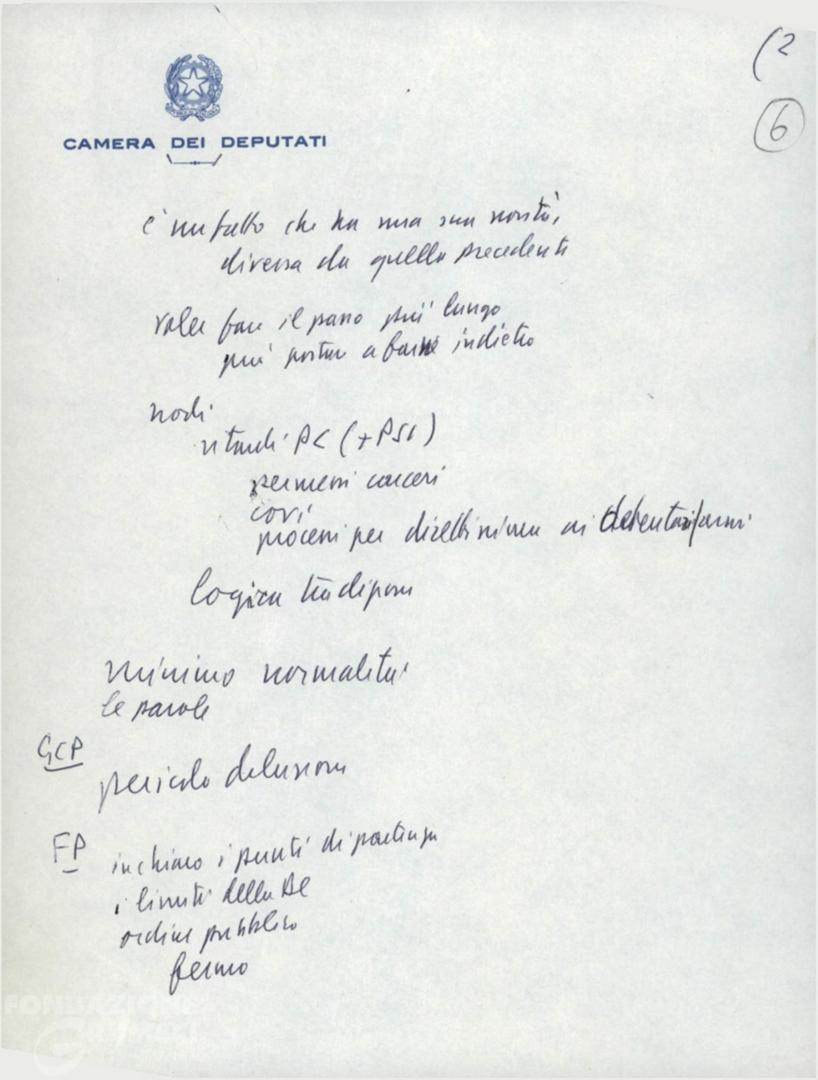 (2
6
CAMERA DEI DEPUTATI
è un fatto che ha una sua novità,
diversa da quelle precedenti
voler fare il passo più lungo
può portare a farne indietro
nodi
ritardi PC (+PSI)
permessi carceri
covi
processi per direttissima ai detentori armi
logica
minimo normalità
le parole
GCP
pericolo delusioni
FP
in chiaro i punti di partenza
i limiti della DC
ordine pubblico
fermo
FONDAZIONE